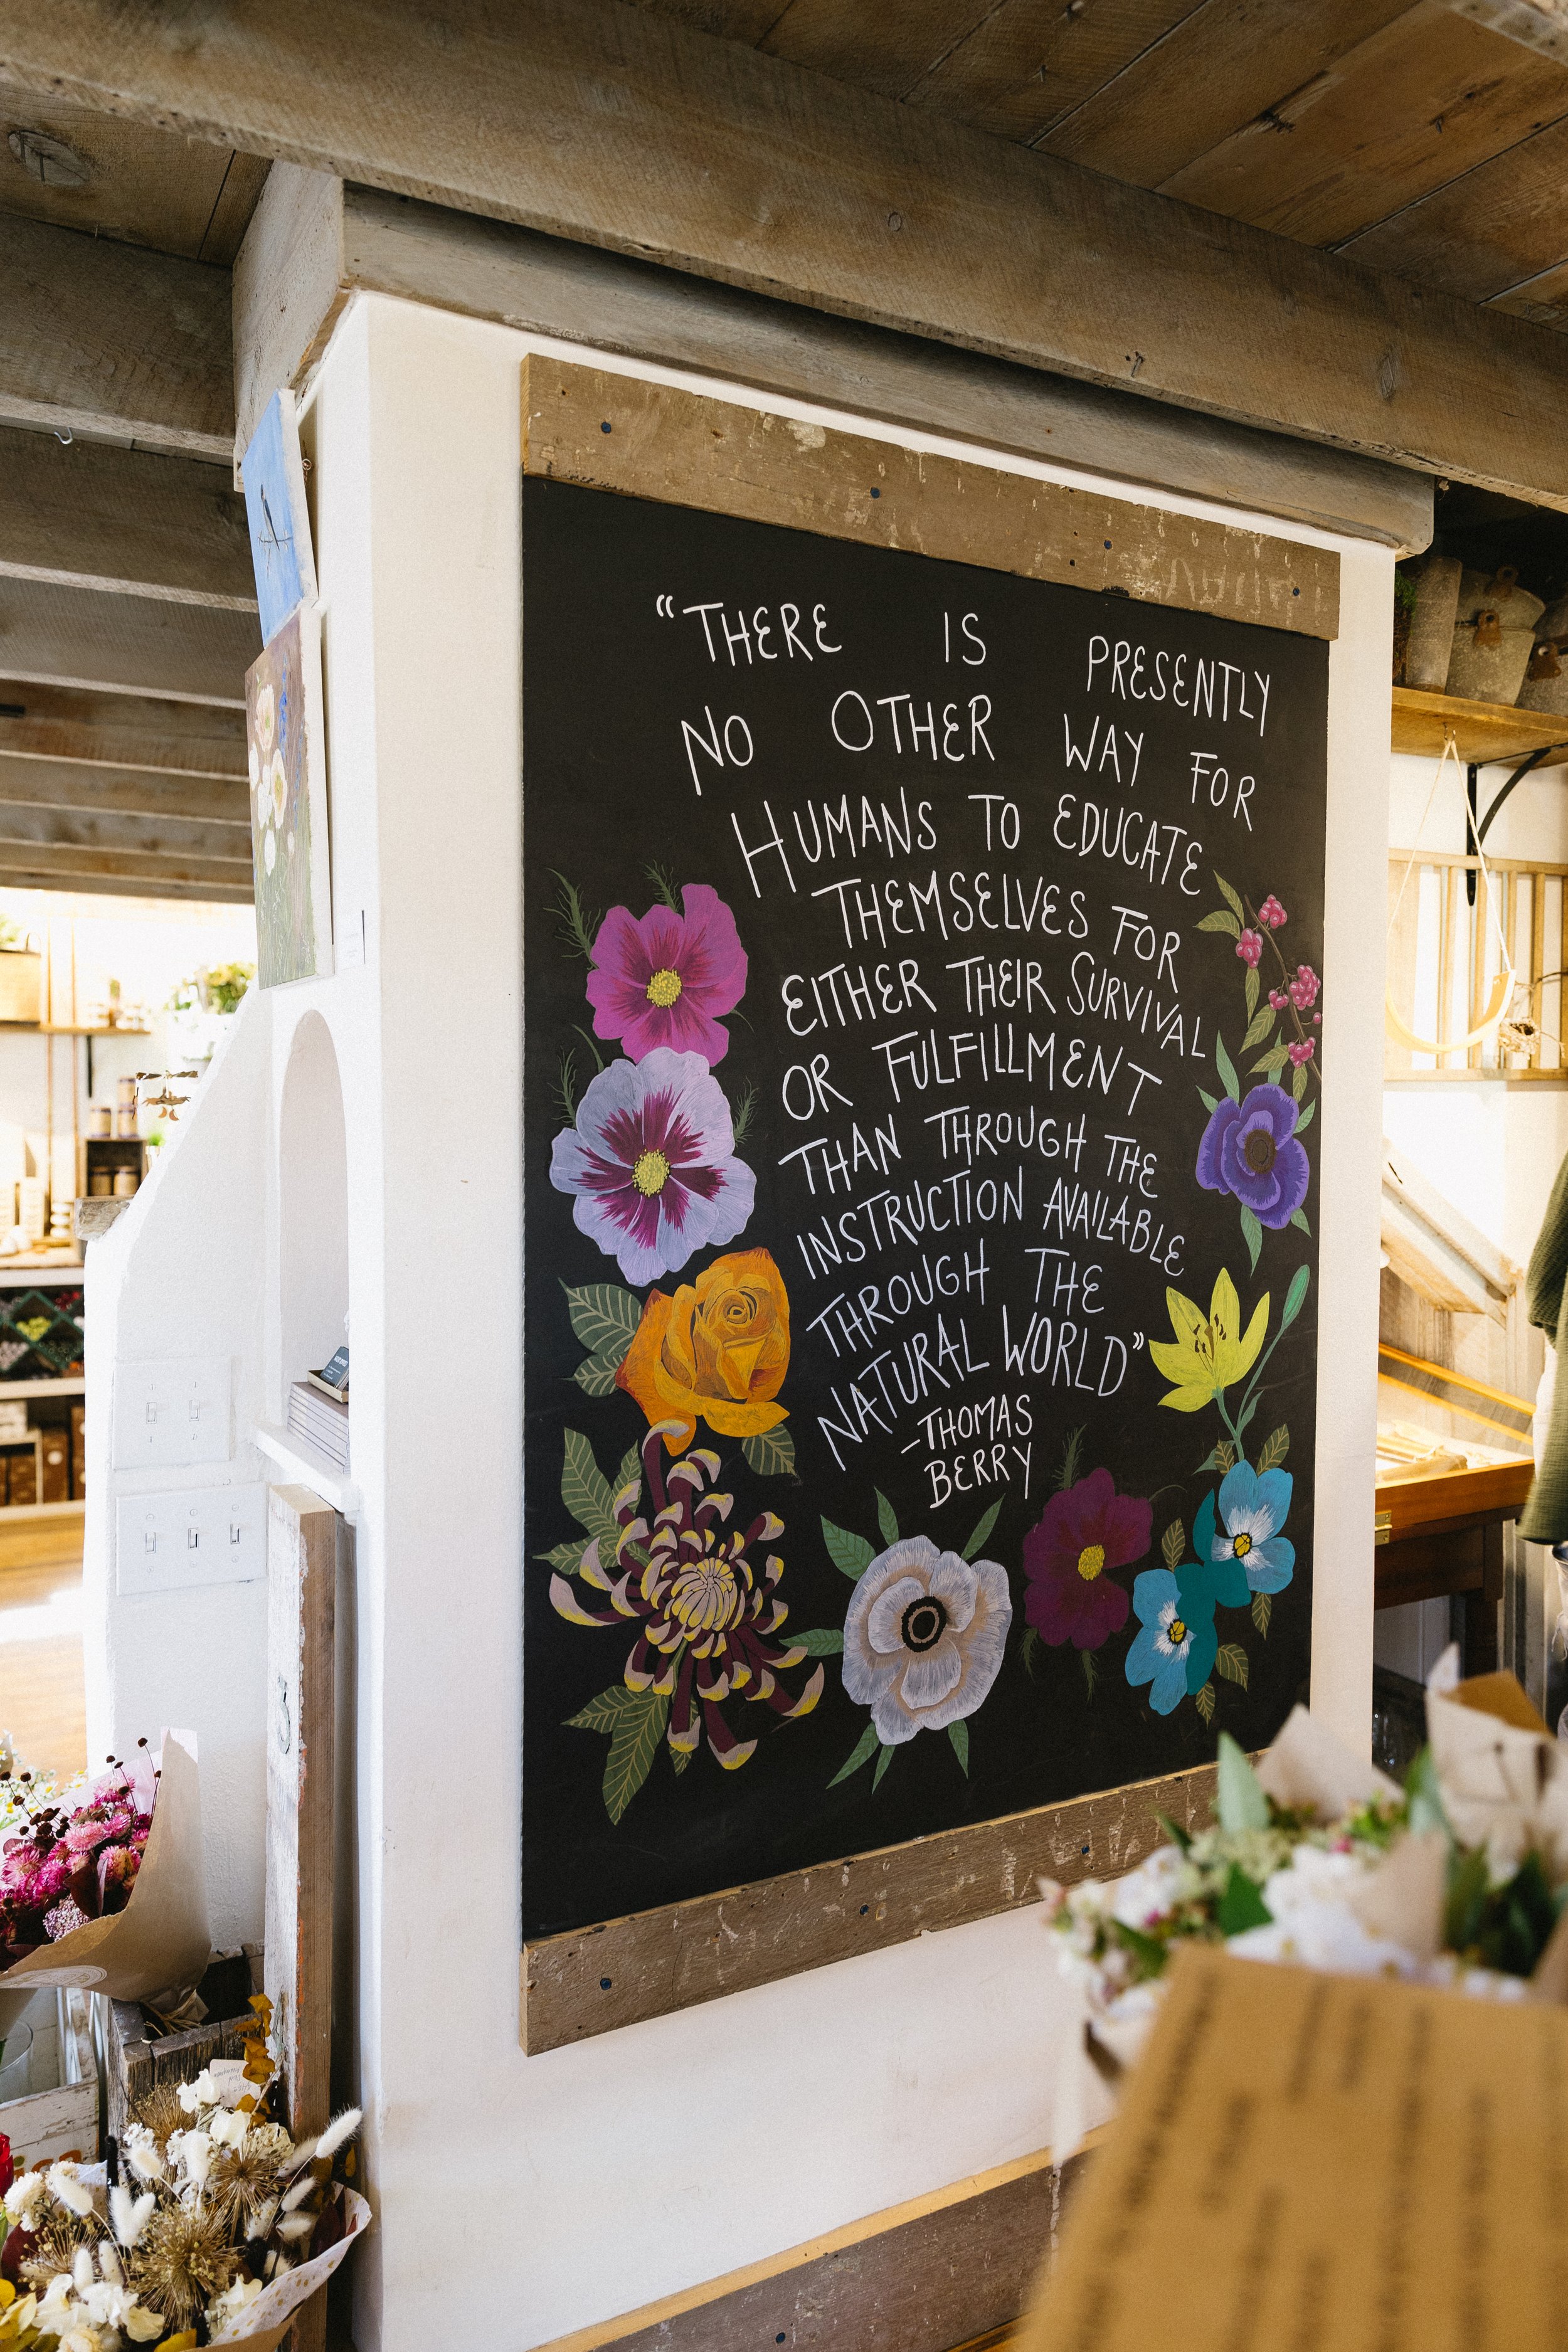 “THERE IS PRESENTLY
NO OTHER WAY FOR
HUMANS TO EDUCATE
THEMSELVES FOR
EITHER THEIR SURVIVAL
OR FULFILLMENT
THAN THROUGH THE
INSTRUCTION AVAILABLE
THROUGH THE
NATURAL WORLD”
-THOMAS
BERRY